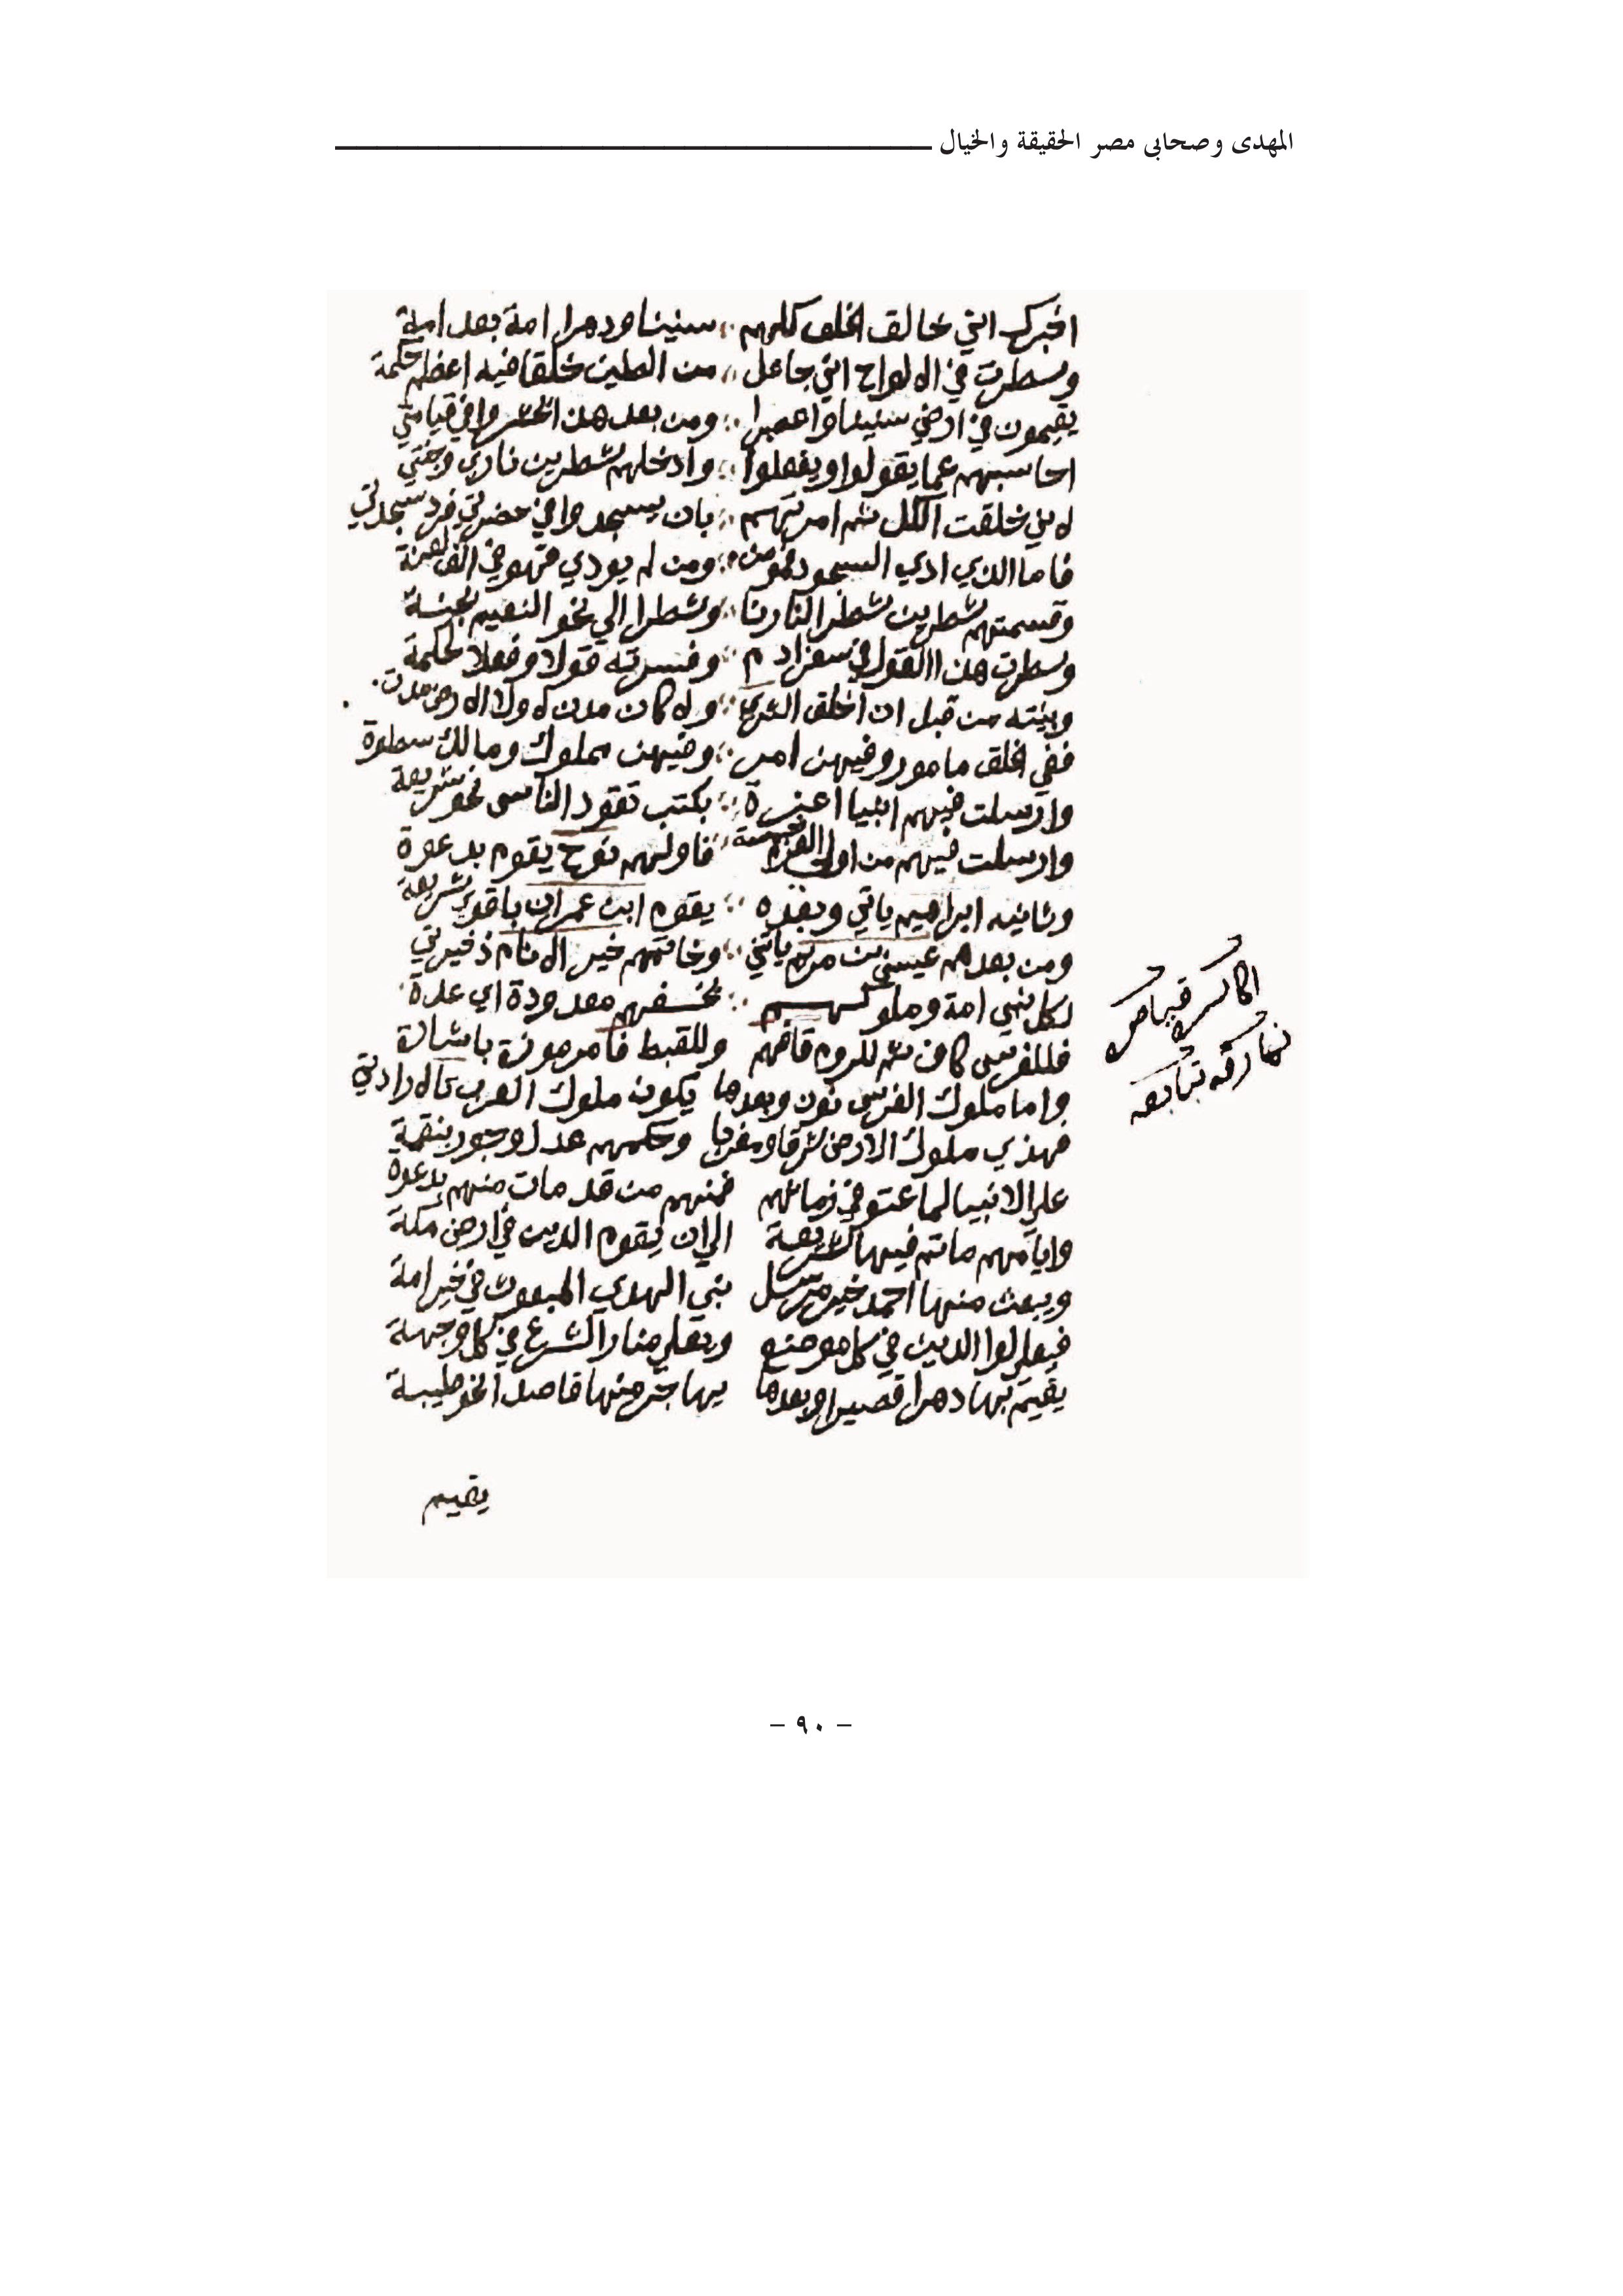 المهدى وصحابى مصر الحقيقة والخيال
اخبرك اني خالق الخلق كلهم سنينا ودهرا امة بعد امة
وسطرت في الالواح اني جاعل من الطين خلقا فيه اعظم حكمة
يقيمون في ارضي سنينا واعصرا ومن بعد هذا احشروا في قيامتي
احاسبهم عما يقولوا ويفعلوا وادخلهم شطرين ناري وجنتي
لاني خلقت الكل ثم امرتهم بان يسجدوا في حضرتي فرد سجدتي
فاما الذي ادي السجود فمومن ومن لم يودي فهو في الف لعنة
وقسمتهم شطرين شطر النارنا وشطرا الي نحو النعيم بجنة
وسطرت هذا القول في سفر ادم وفسرته قولا وفعلا لحكمة
وبينته من قبل ان اخلق الثري ولا كان مدن لا ولا الارض مدت
ففي الخلق مامور وفيهن امر وفيهن مملوك ومالك سطوة
وارسلت فيهم انبيا اعزة بكتب تقود الناس نحو شريعة
وارسلت فيهم من اولي العزم خمسة فاولهم نوح يقوم بدعوة
وثانيه ابراهيم ياتي وبعده يقوم ابن عمران باقوي شريعة
ومن بعدهم عيسي بن مريم ياتي وخاتمهم خير الانام ذخيرتي
لكل نبي امة وملوكهم معدودة اي عدة
فللفرس كاف ثم للروم قافهم وللقبط فا مرموزة باشارة
واما ملوك الفرس نون وبعدها يكون ملوك العرب
فهذي ملوك الارض شرقا ومغربا وحكمهم عدل وجور بنقمة
علي الانبيا لما عتو في زمانهم فمنهم من قد مات منهم بدعوة
وايامهم ما تم فيها شريعة الي ان يقوم الدين في ارض مكة
ويبعث منها احمد خير مرسل نبي الهدي المبعوث في خير امة
فيعلوا الدين في كل موضع ويعلي منار الشرع في كل وجهة
يقيم بها دهرا قصيرا وبعدها يهاجر منها قاصدا نحو طيبة
يقيم
- ٩٠ -